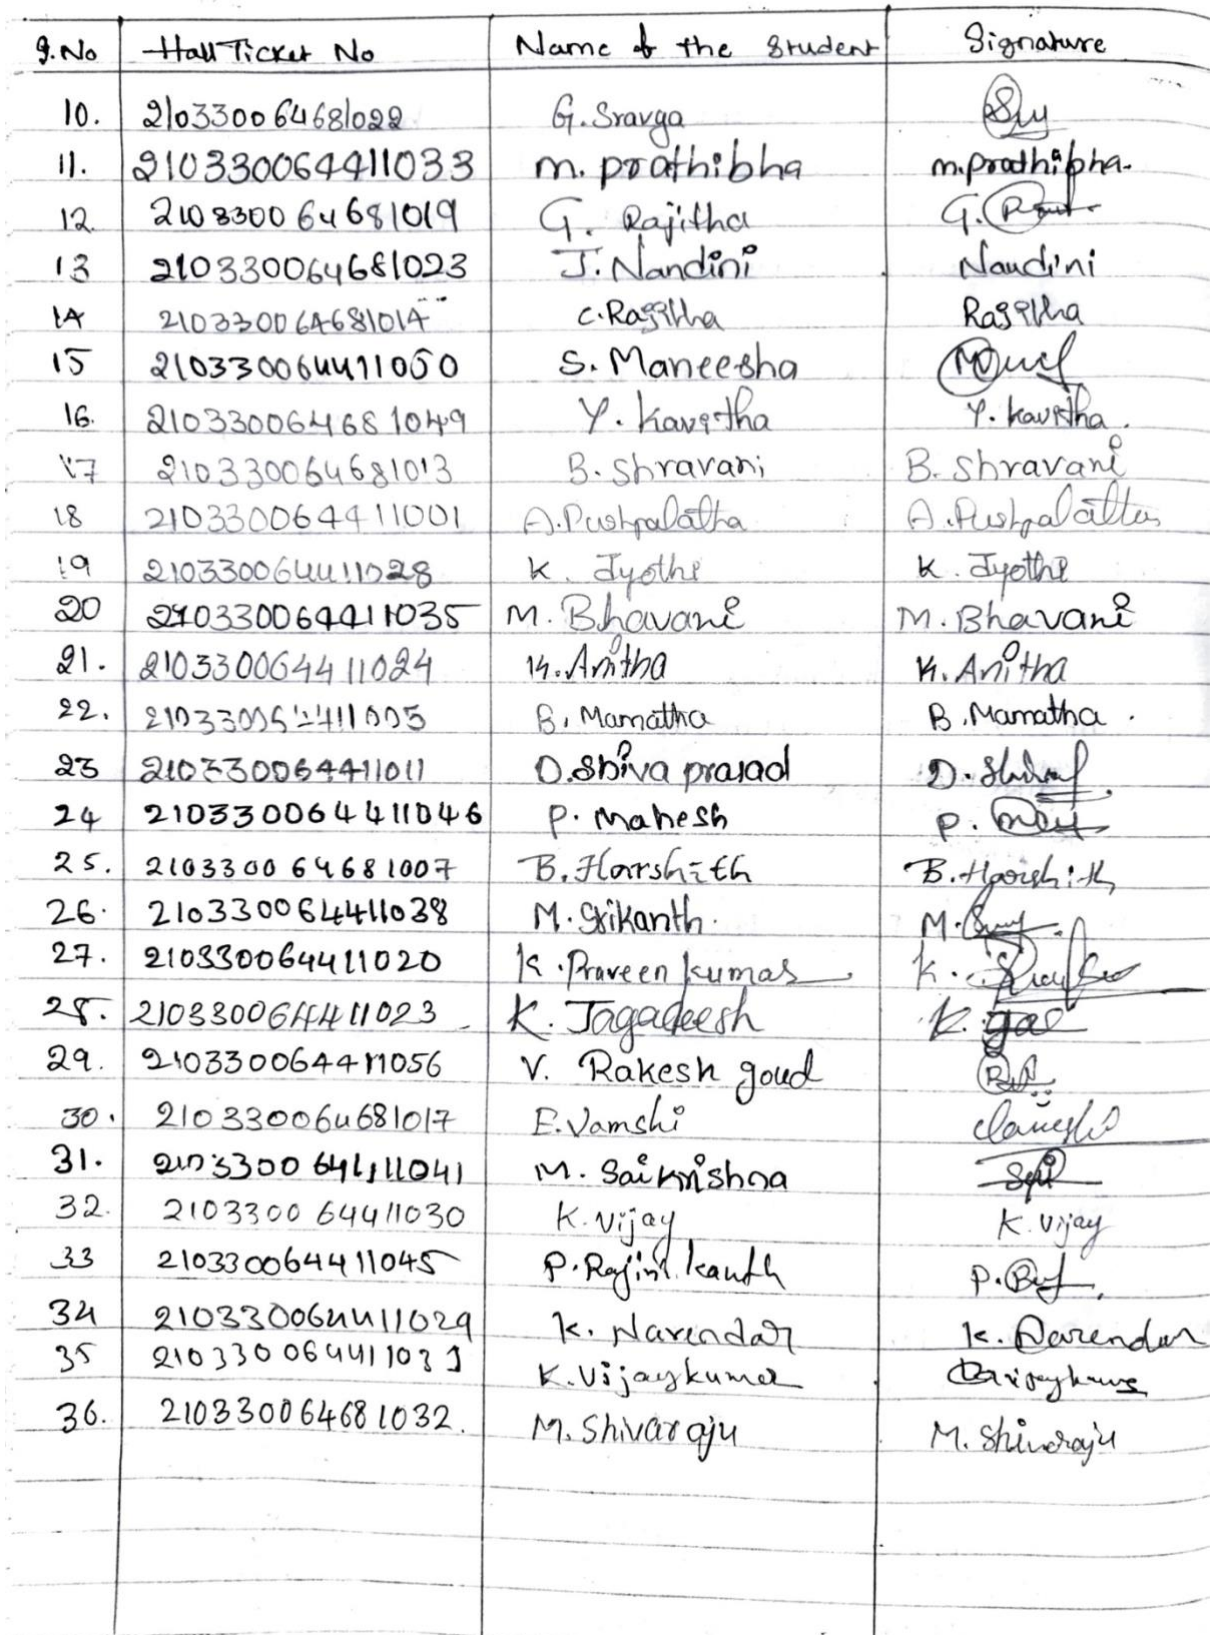 S.No Hall Ticket No Name of the Student Signature
10. 210330064681022 G. Sravya
11. 210330064411033 m. prathibha m.prathibha.
12. 210330064681019 G. Rajitha G.
13 210330064681023 J. Nandini Nandini
14 210330064681014 C. Rajitha Rajitha
15 210330064411050 S. Maneesha
16. 210330064681049 Y. Kavitha Y. Kavitha.
17 210330064681013 B. Shravani B. Shravani
18 210330064411001 A. Pushpalatha A. Pushpalatha
19 210330064411028 K. Jyothi K. Jyothi
20 210330064411035 M. Bhavani M. Bhavani
21. 210330064411024 K. Anitha K. Anitha
22. 210330064411005 B. Mamatha B. Mamatha.
23 210330064411011 D. Shiva prasad D.
24 210330064411046 P. Mahesh P.
25. 210330064681007 B. Harshith B. Harshith
26. 210330064411038 M. Srikanth. M.
27. 210330064411020 K. Praveen kumar K.
28. 210330064411023 K. Jagadeesh K.
29. 210330064411056 V. Rakesh goud
30. 210330064681017 E. Vamshi
31. 210330064411041 M. Saikrishna Sai
32. 210330064411030 K. Vijay K. Vijay
33 210330064411045 P. Rajini kanth P.
34 210330064411029 K. Narendar K. Narendar
35 210330064411031 K. Vijaykumar
36. 210330064681032. M. Shivaraju M. Shivaraju